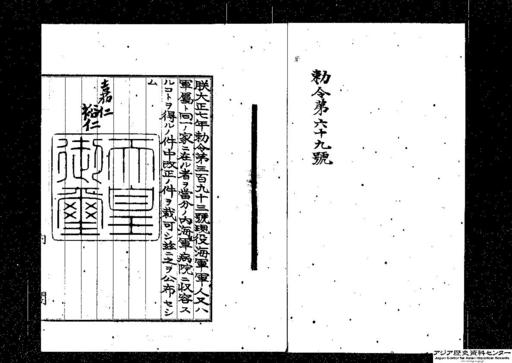 勅令第六十九號
朕大正七年勅令第三百九十三號現役海軍軍人又ハ
軍屬ト同一ノ家ニ在ル者ヲ當分ノ内海軍病院ニ收容ス
ルコトヲ得ルノ件中改正ノ件ヲ裁可シ茲ニ之ヲ公布セシ
ム
嘉仁
裕仁
天皇
御璽
内
閣
アジア歴史資料センター
Japan Center for Asian Historical Records